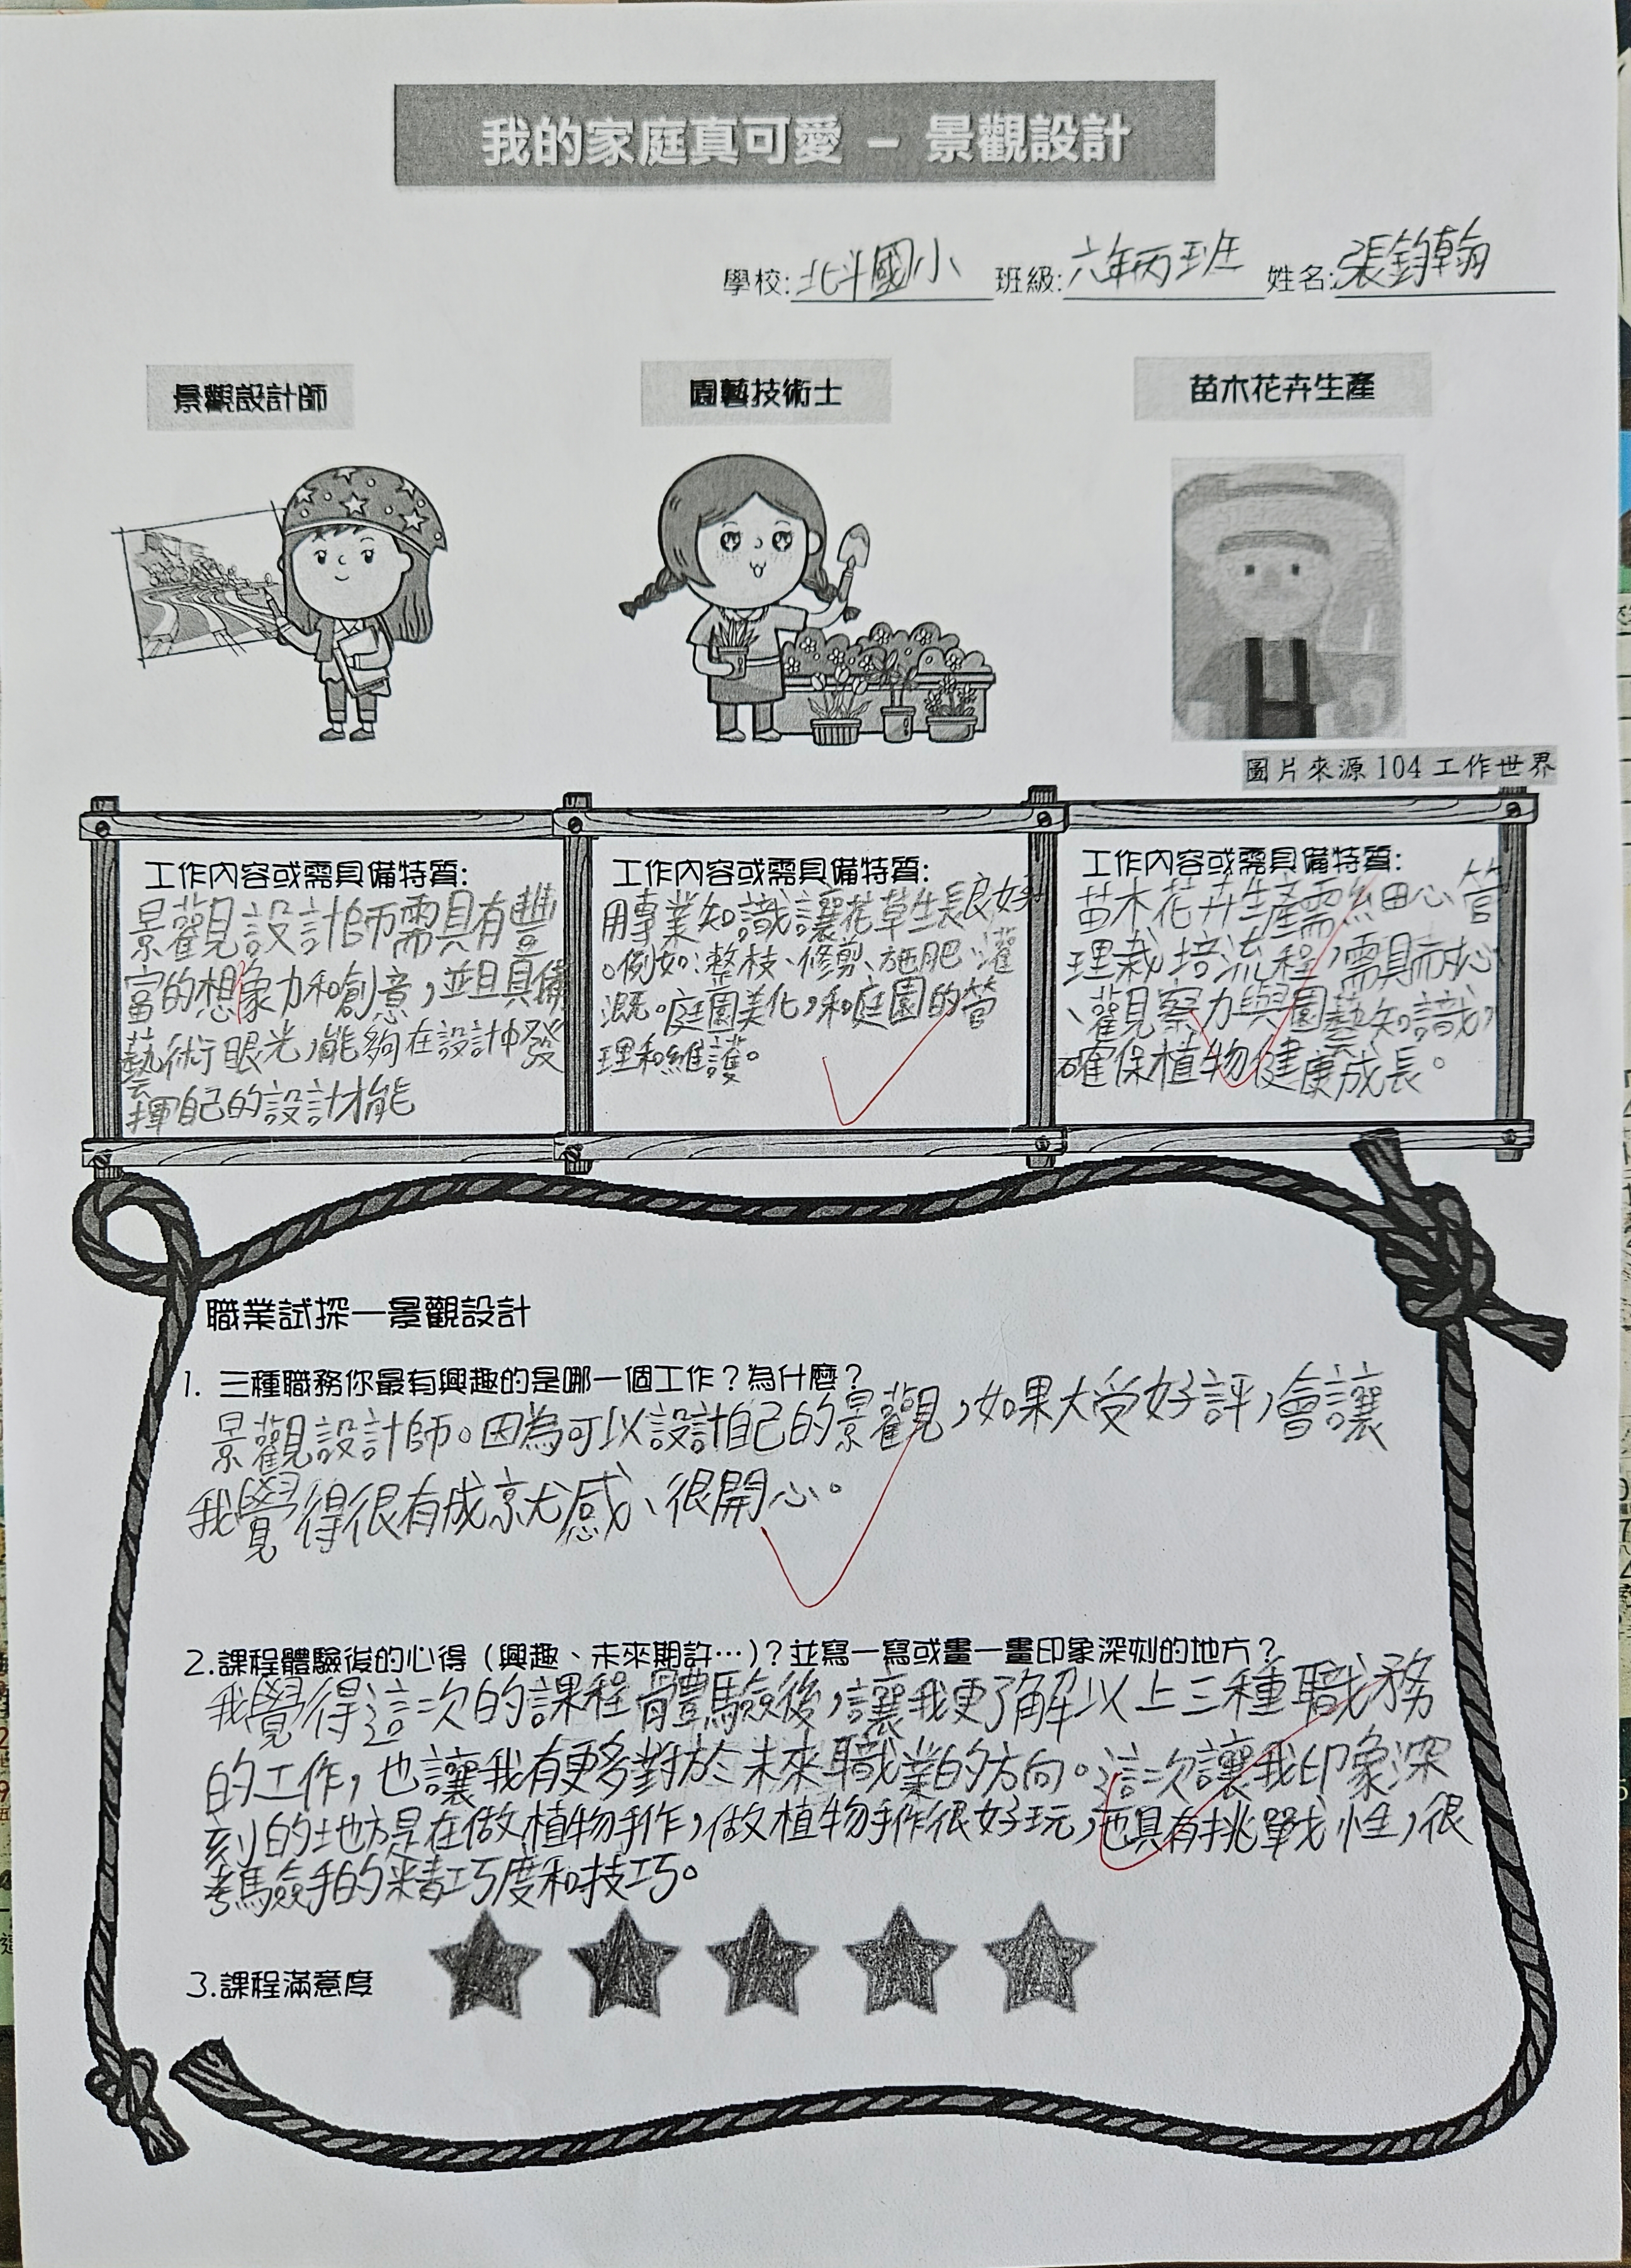 我的家庭真可愛 – 景觀設計
學校:北斗國小 班級:六年丙班 姓名:張鈞翰
景觀設計師
園藝技術士
苗木花卉生產
圖片來源 104 工作世界
工作內容或需具備特質:
景觀設計師需具有豐
富的想象力和創意,並且具備
藝術眼光,能夠在設計中發
揮自己的設計才能
工作內容或需具備特質:
用專業知識讓花草生長良好
。例如:整枝、修剪、施肥、灌
溉。庭園美化,和庭園的管
理和維護。
工作內容或需具備特質:
苗木花卉生產需細心管
理栽培流程,需具耐心
、觀察力與園藝知識,
確保植物健康成長。
職業試探—景觀設計
1. 三種職務你最有興趣的是哪一個工作?為什麼?
景觀設計師。因為可以設計自己的景觀,如果大受好評,會讓
我覺得很有成就感、很開心。
2.課程體驗後的心得(興趣、未來期許…)?並寫一寫或畫一畫印象深刻的地方?
我覺得這次的課程體驗後,讓我更了解以上三種職務
的工作,也讓我有更多對於未來職業的方向。這次讓我印象深
刻的地方是在做植物手作,做植物手作很好玩,也具有挑戰性,很
考驗手的精巧度和技巧。
3.課程滿意度